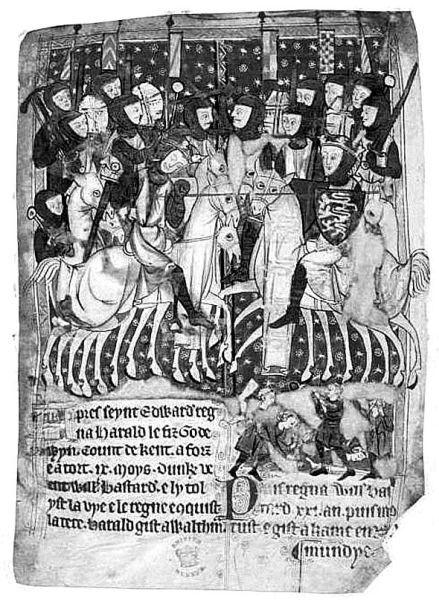 pres seynt Edward reg
na Harald le fiz Gode
wyn. Count de kent. a forz
e a tort. ix. moys. Dunke ve
ent Will Bastard. e ly tol
yst la vye e le regne conquist
la tere. Harald gist a Waltham
Pus regna Will bas
tard xxi. an. puis mo
rust e gist a kame en
mundye